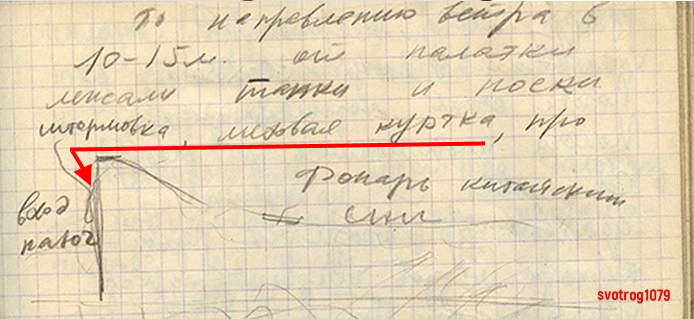 По направлению ветра в
10-15м. от палатки
лежали тапки и носки
штормовка, меховая куртка, про
Фонарь китайский
вход
палат
svotrog1079